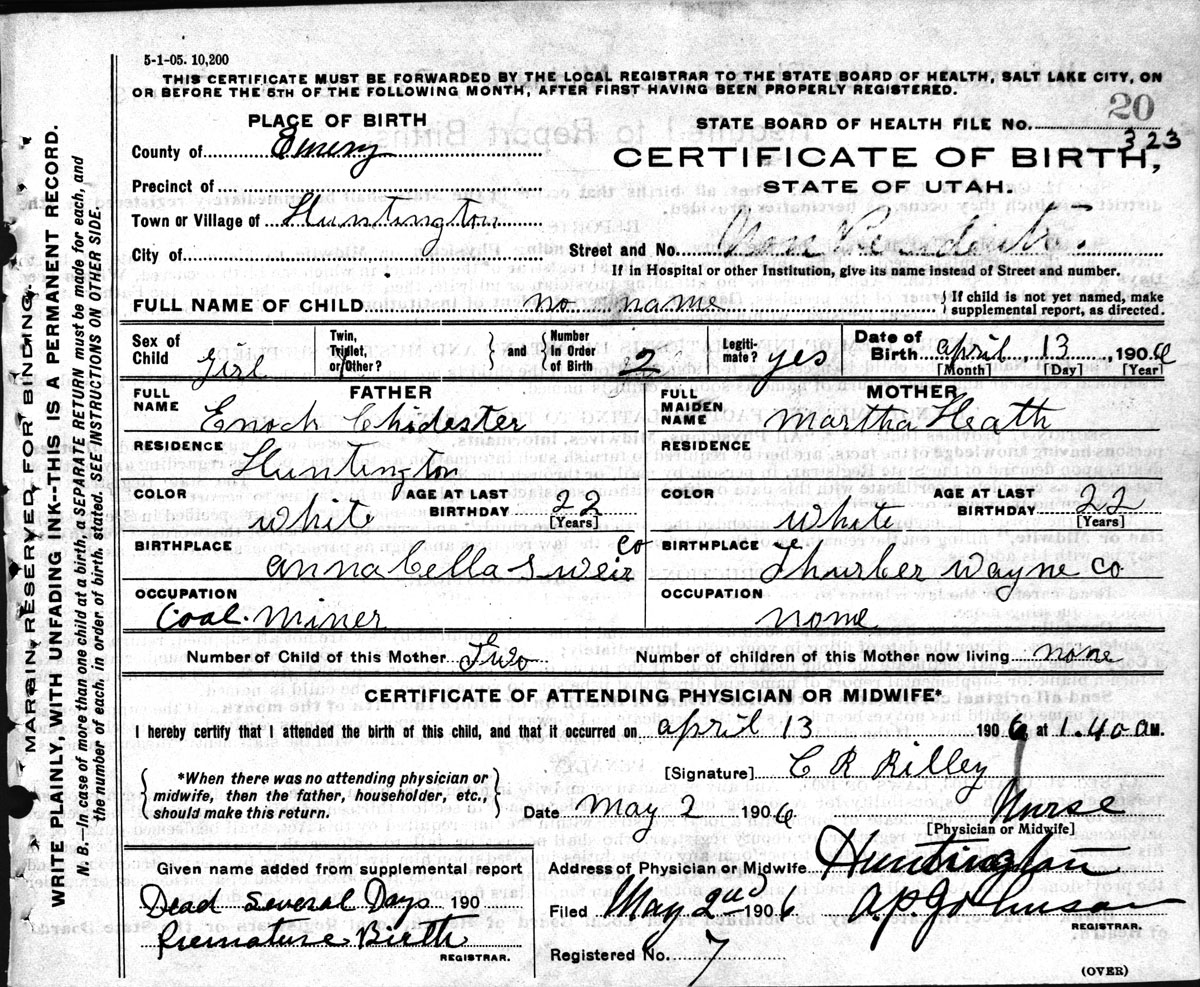 5-1-05. 10,200
THIS CERTIFICATE MUST BE FORWARDED BY THE LOCAL REGISTRAR TO THE STATE BOARD OF HEALTH, SALT LAKE CITY, ON
OR BEFORE THE 5TH OF THE FOLLOWING MONTH, AFTER FIRST HAVING BEEN PROPERLY REGISTERED.
20
PLACE OF BIRTH
STATE BOARD OF HEALTH FILE No. 323
County of Emery
CERTIFICATE OF BIRTH,
Precinct of
STATE OF UTAH.
Town or Village of Huntington
City of
Street and No.
If in Hospital or other Institution, give its name instead of Street and number.
FULL NAME OF CHILD no name
If child is not yet named, make supplemental report, as directed.
Sex of Child Girl
Twin, Triplet, or Other?
and
Number in Order of Birth 2
Legitimate? yes
Date of Birth april, 13, 1906
[Month] [Day] [Year]
FATHER
FULL NAME Enoch Chidester
MOTHER
FULL MAIDEN NAME Martha Heath
RESIDENCE Huntington
RESIDENCE
COLOR White
AGE AT LAST BIRTHDAY 22 [Years]
COLOR White
AGE AT LAST BIRTHDAY 22 [Years]
BIRTHPLACE annabella Sweir co
BIRTHPLACE Thurber Wayne co
OCCUPATION Coal Miner
OCCUPATION none
Number of Child of this Mother Two
Number of children of this Mother now living none
CERTIFICATE OF ATTENDING PHYSICIAN OR MIDWIFE*
I hereby certify that I attended the birth of this child, and that it occurred on april 13 1906 at 1.40 a M.
*When there was no attending physician or midwife, then the father, householder, etc., should make this return.
[Signature] C R Rilley
Date May 2 1906
Nurse
[Physician or Midwife]
Given name added from supplemental report
Address of Physician or Midwife Huntington
Dead Several Days 190
Filed May 2nd 1906 A P Johnson
Premature Birth
REGISTRAR.
REGISTRAR.
Registered No. 7
(OVER)
MARGIN RESERVED FOR BINDING.
WRITE PLAINLY, WITH UNFADING INK--THIS IS A PERMANENT RECORD.
N. B.—In case of more than one child at a birth, a SEPARATE RETURN must be made for each, and
the number of each, in order of birth, stated. SEE INSTRUCTIONS ON OTHER SIDE.